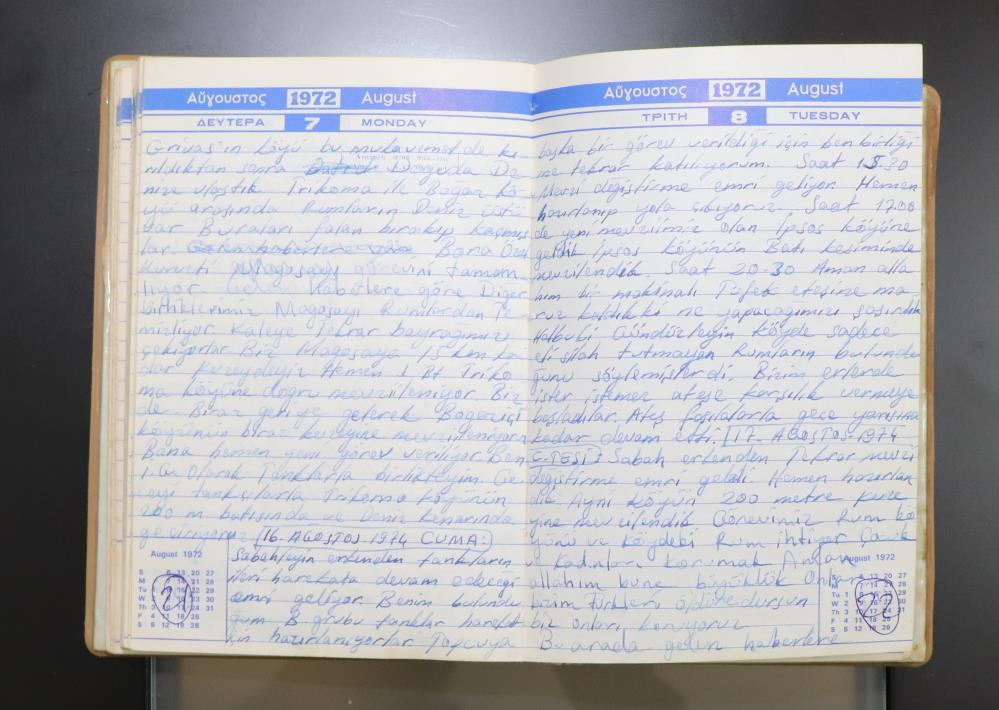 Αὔγουστος 1972 August
ΔΕΥΤΕΡΑ 7 MONDAY
Grivas'ın köyü bu mukavemet de kı
rıldıktan sonra Doğuda De
nize vlaştık Trikoma ile Boğaz kö
yü arasında Rumların Deniz üstü
var Buraları falan bırakıp kaçmış
lar. Bana Özel
Kuvveti Magosada görevini tamam
lıyor. Gelen haberlere göre Diğer
birliklerimiz Magosayı Rumlardan Te
mizliyor. Kaleye Tekrar bayrağımızı
çekiyorlar. Biz Magosaya 15 km ka
dar kuzeydeyiz Hemen 1. Bl Triko
ma köyüne doğru mevzileniyor. Biz
de Biraz geriye gelerek Bogaziçi
köyünün biraz kuzeyine mevzileniyoruz
Bana hemen yeni görev veriliyor. Ben
1. Olarak Tanklarla birlikteyim. Ge
ceyi tankçılarla Trikomo köyünün
200 m batısında ve Deniz kenarında
geçiriyoruz (16-AGOSTOS-1974 CUMA:)
Sabahleyin erkenden tankların
ileri harekata devam edeceği
emri geliyor. Benim bulundu
ğum B grubu tanklar hareket
için hazırlanıyorlar Topcuya
August 1972
S 6 13 20 27
M 7 14 21 28
Tu 1 8 15 22 29
W 2 9 16 23 30
Th 3 10 17 24 31
F 4 11 18 25
S 5 12 19 26
Αὔγουστος 1972 August
ΤΡΙΤΗ 8 TUESDAY
başka bir görev verildiği için ben birliği
me tekrar katılıyorum. Saat 15.30
Mevzi değiştirme emri geliyor. Hemen
hazırlanıp yola çıkıyoruz. Saat 17.00
de yeni mevziimiz olan İpsos köyüne
geldik İpsos köyünün Batı kesiminde
mevzilendik. Saat 20.30 Aman alla
hım bir makinalı Tüfek ateşine ma
ruz kaldık ki ne yapacağımızı şaşırdık
Halbuki Gündüzleyin köyde sadece
eli silah tutmayan Rumların bulundu
ğunu söylemişlerdi. Bizim erlerde
ister istemez ateşe karşılık vermeye
başladılar. Ateş fasılalarla gece yarısına
kadar devam etti. (17-AGOSTOS-1974
C.TESİ) Sabah erkenden Tekrar mevzi
değiştirme emri geldi. Hemen hazırlan
dık Ayni köyün 200 metre kuze
yine mevzilendik. Görevimiz Rum kö
yünü ve köydeki Rum ihtiyar Çocuk
ve Kadınları korumak Aman
allahım bu ne büyüklük Onlar
bizim Türkleri öldüre dursun
biz onları koruyoruz
Bu arada gelen haberlere
August 1972
S 6 13 20 27
M 7 14 21 28
Tu 1 8 15 22 29
W 2 9 16 23 30
Th 3 10 17 24 31
F 4 11 18 25
S 5 12 19 26